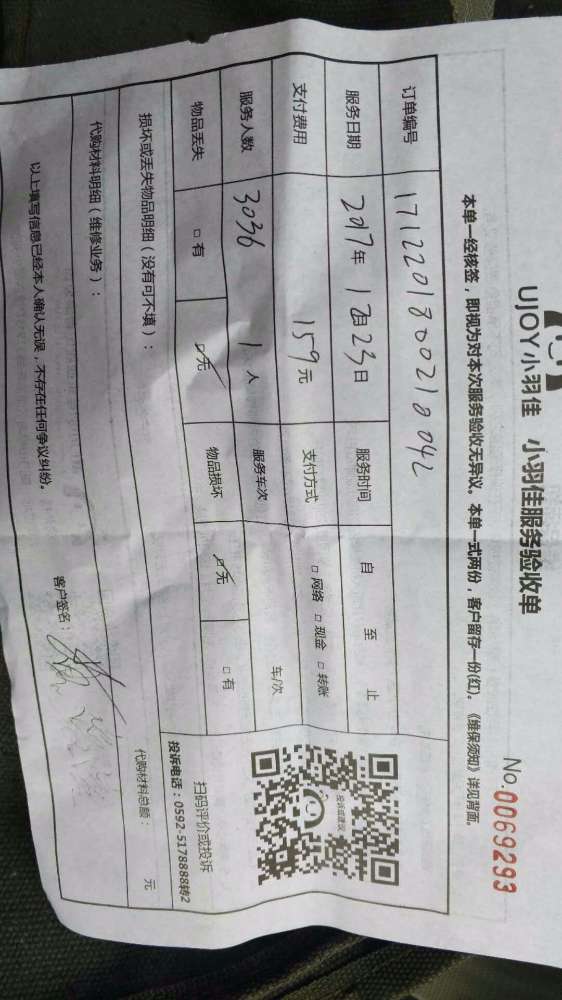 UJOY小羽佳 小羽佳服务验收单
No.0069293
本单一经核签，即视为对本次服务验收无异议。本单一式两份，客户留存一份(红)。《维保须知》详见背面。
订单编号 171220180021004L
服务日期 2017年 12月23日 服务时间 自 至 止
支付费用 159元 支付方式 □网络 □现金 □转账
服务人数 3036 1人 服务车次 车/次
物品丢失 □有 □无 物品损坏 □无 □有
损坏或丢失物品明细（没有可不填）：
扫码评价或投诉
投诉电话：0592-5178888转2
投诉或建议
代购材料明细（维修业务）：
代购材料总额： 元
以上填写信息已经本人确认无误，不存在任何争议纠纷。
客户签名：